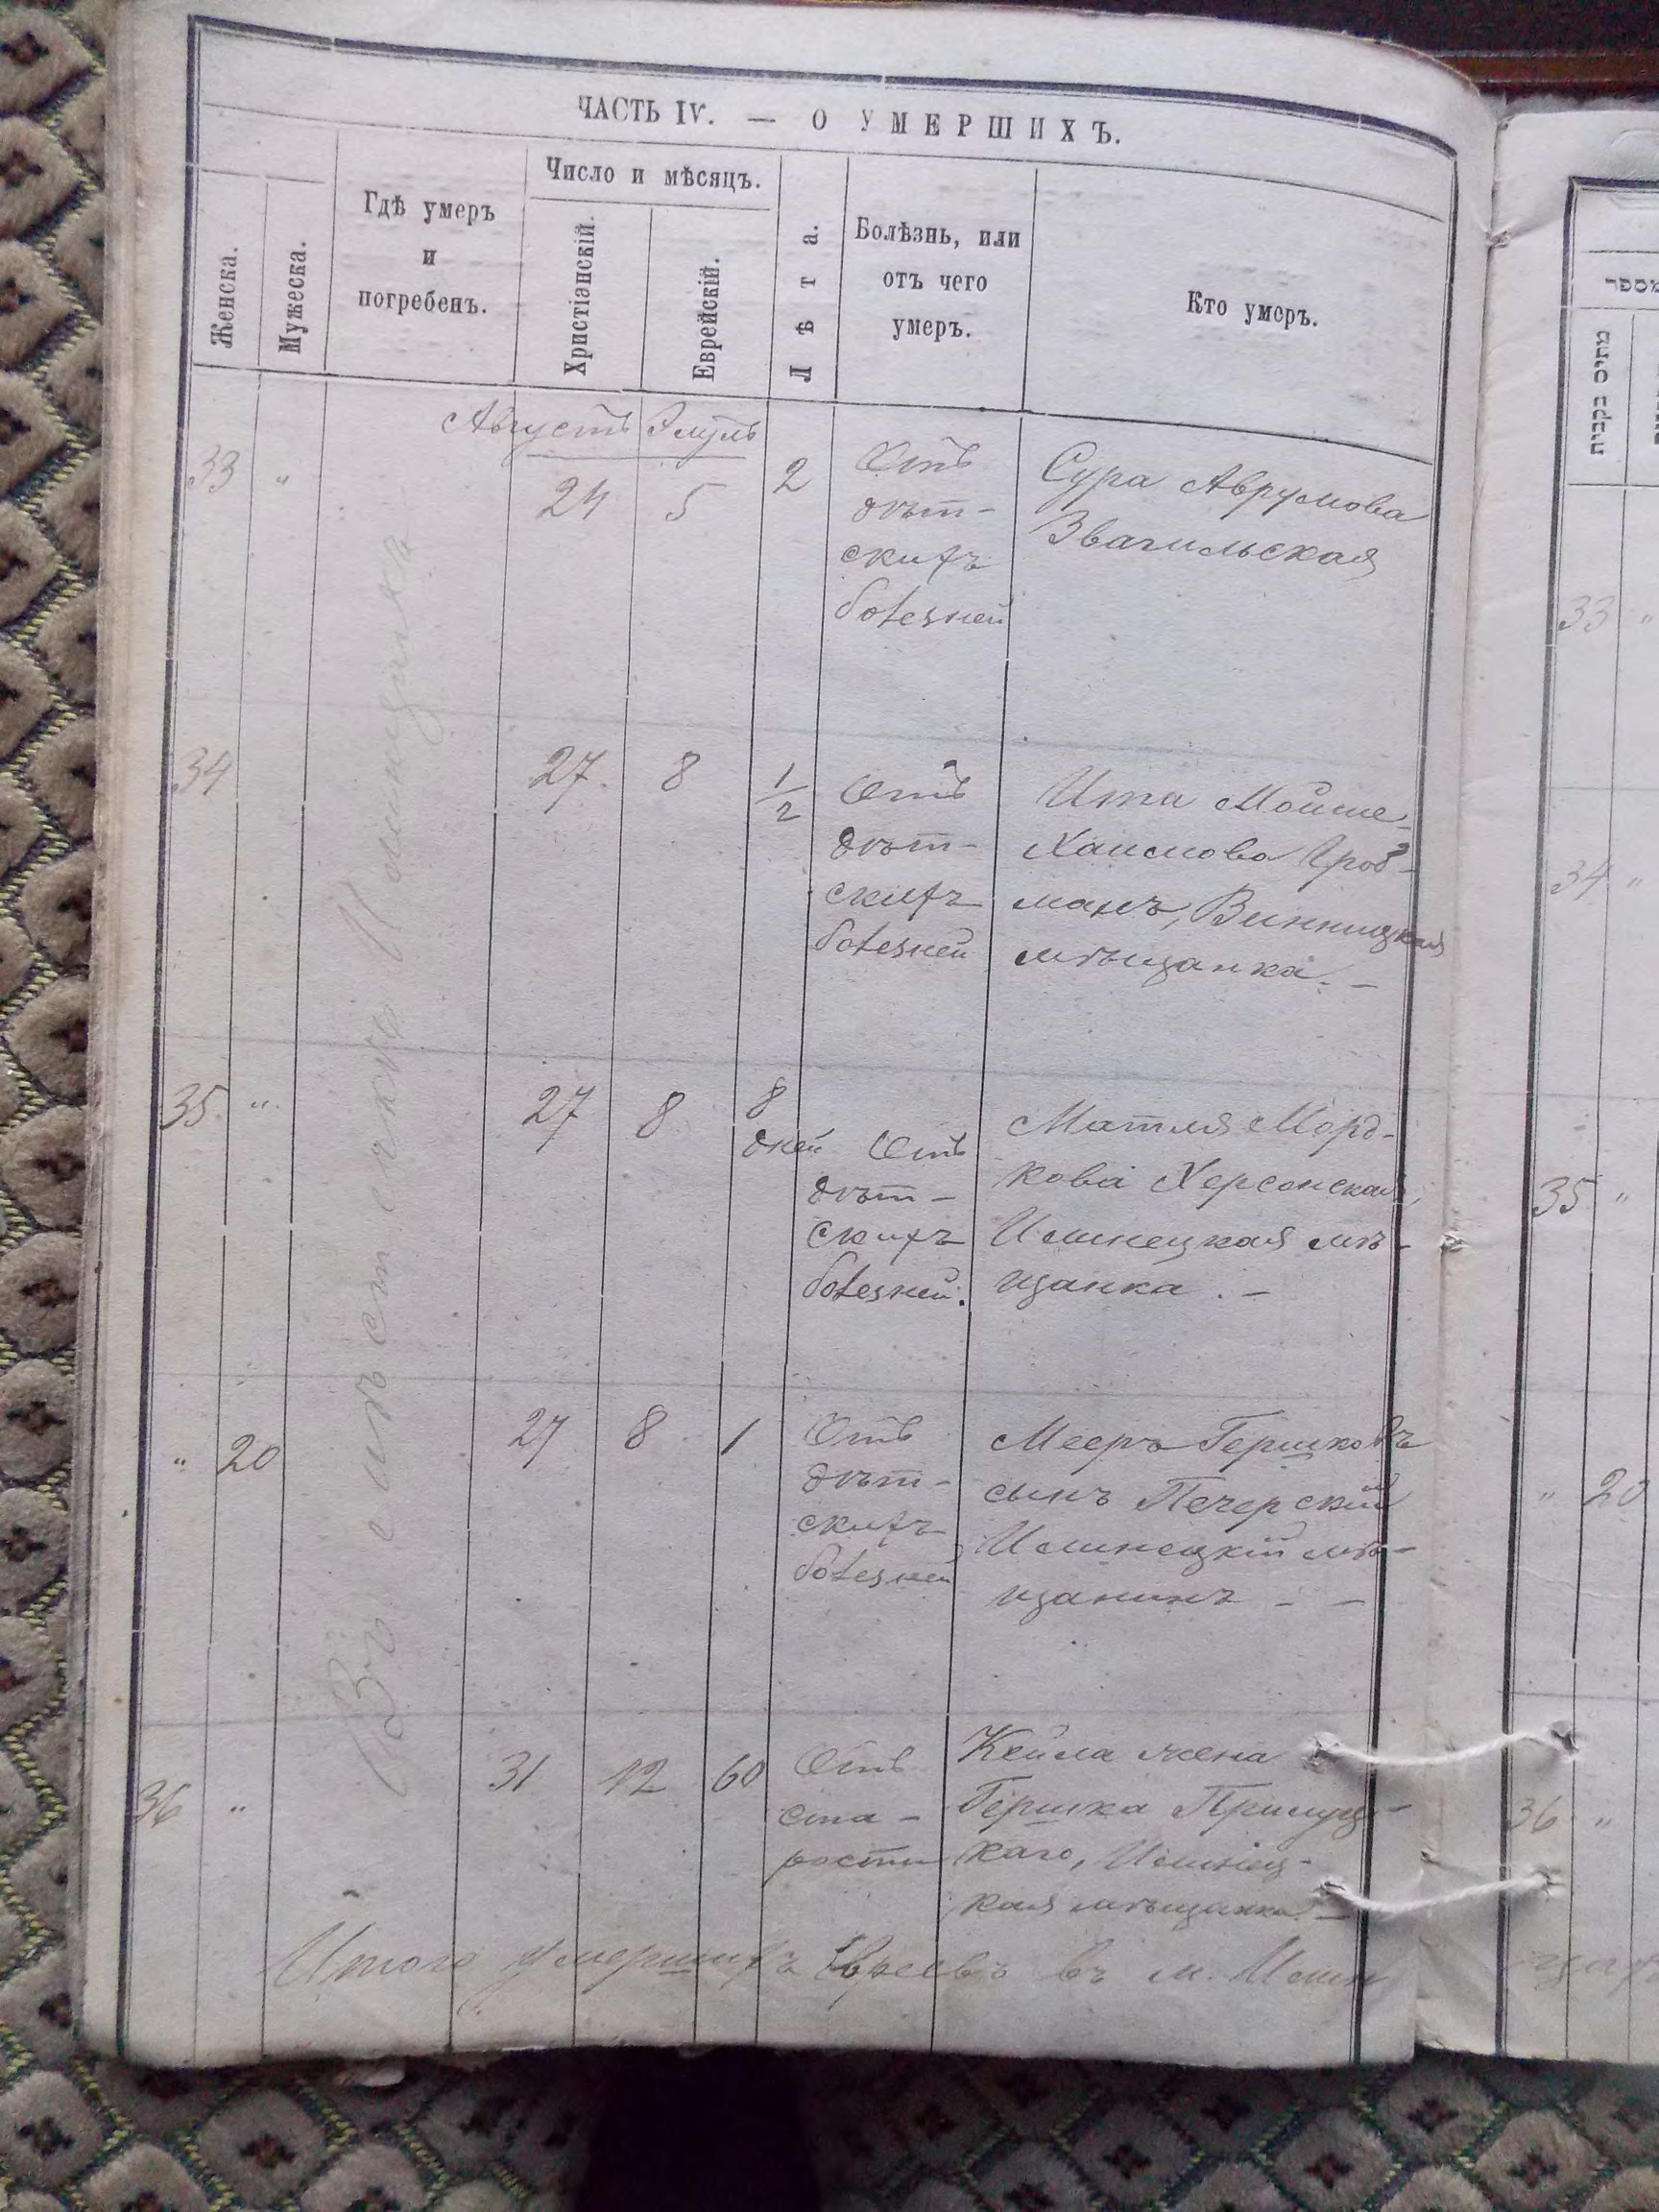 ЧАСТЬ IV. — О УМЕРШИХЪ.
Женска.
Мужеска.
Гдѣ умеръ
и
погребенъ.
Число и мѣсяцъ.
Христіанскій.
Еврейскій.
Лѣта.
Болѣзнь, или
отъ чего
умеръ.
Кто умеръ.
Въ мѣстечкѣ
Августъ Элулъ
33 " 24 5 2
Отъ
дѣт-
скихъ
болезней
Сура Аврумова
Звагильская
34 27. 8 1/2
Отъ
дѣт-
скихъ
болезней
Ита Мойше-
Хаимова Гроб-
манъ, Винницкая
мѣщанка. -
35 " 27 8 8
дней
Отъ
дѣт-
скихъ
болезней.
Матля Морд-
кова Херсонская,
Илинецкая мѣ-
щанка. -
" 20 27 8 1
Отъ
дѣт-
скихъ
болезней
Мееръ Гершковъ
сынъ Печерскій
Илинецкій мѣ-
щанинъ - -
36 " 31 12 60
Отъ
ста-
рости
Кейла жена
Гершка Прилуц-
каго, Илинец-
кая мѣщанка. -
Итого умершихъ Евреевъ въ м. Илин
מספר
33 "
34 "
35 "
" 20
36 "